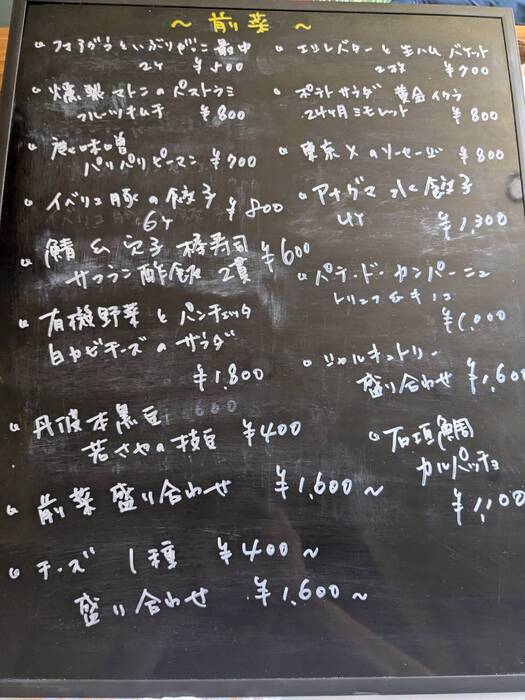 ～ 前菜 ～
フォアグラといぶりがっこ 最中
2ケ ¥500
燻製マトンのパストラミ
フルーツキムチ ¥800
鹿味噌
パリパリピーマン ¥700
イベリコ豚の餃子
6ケ ¥800
鯖 & 穴子 棒寿司 ¥600
サフラン酢飯 2貫
有機野菜とパンチェッタ
白カビチーズのサラダ
¥1,800
丹波本黒豆
若さやの枝豆 ¥400
前菜 盛り合わせ ¥1,600～
チーズ 1種 ¥400～
盛り合わせ ¥1,600～
エゾレバターと生ハム バケット
2枚 ¥700
ポテトサラダ 黄金イクラ
24ヶ月ミモレット ¥800
東京Xのソーセージ ¥800
アナグマ 水餃子
4ケ ¥1,300
パテ・ド・カンパーニュ
トリュフ&キノコ
¥1,000
シャルキュトリー
盛り合わせ ¥1,600
石頂鯛
カルパッチョ
¥1,100